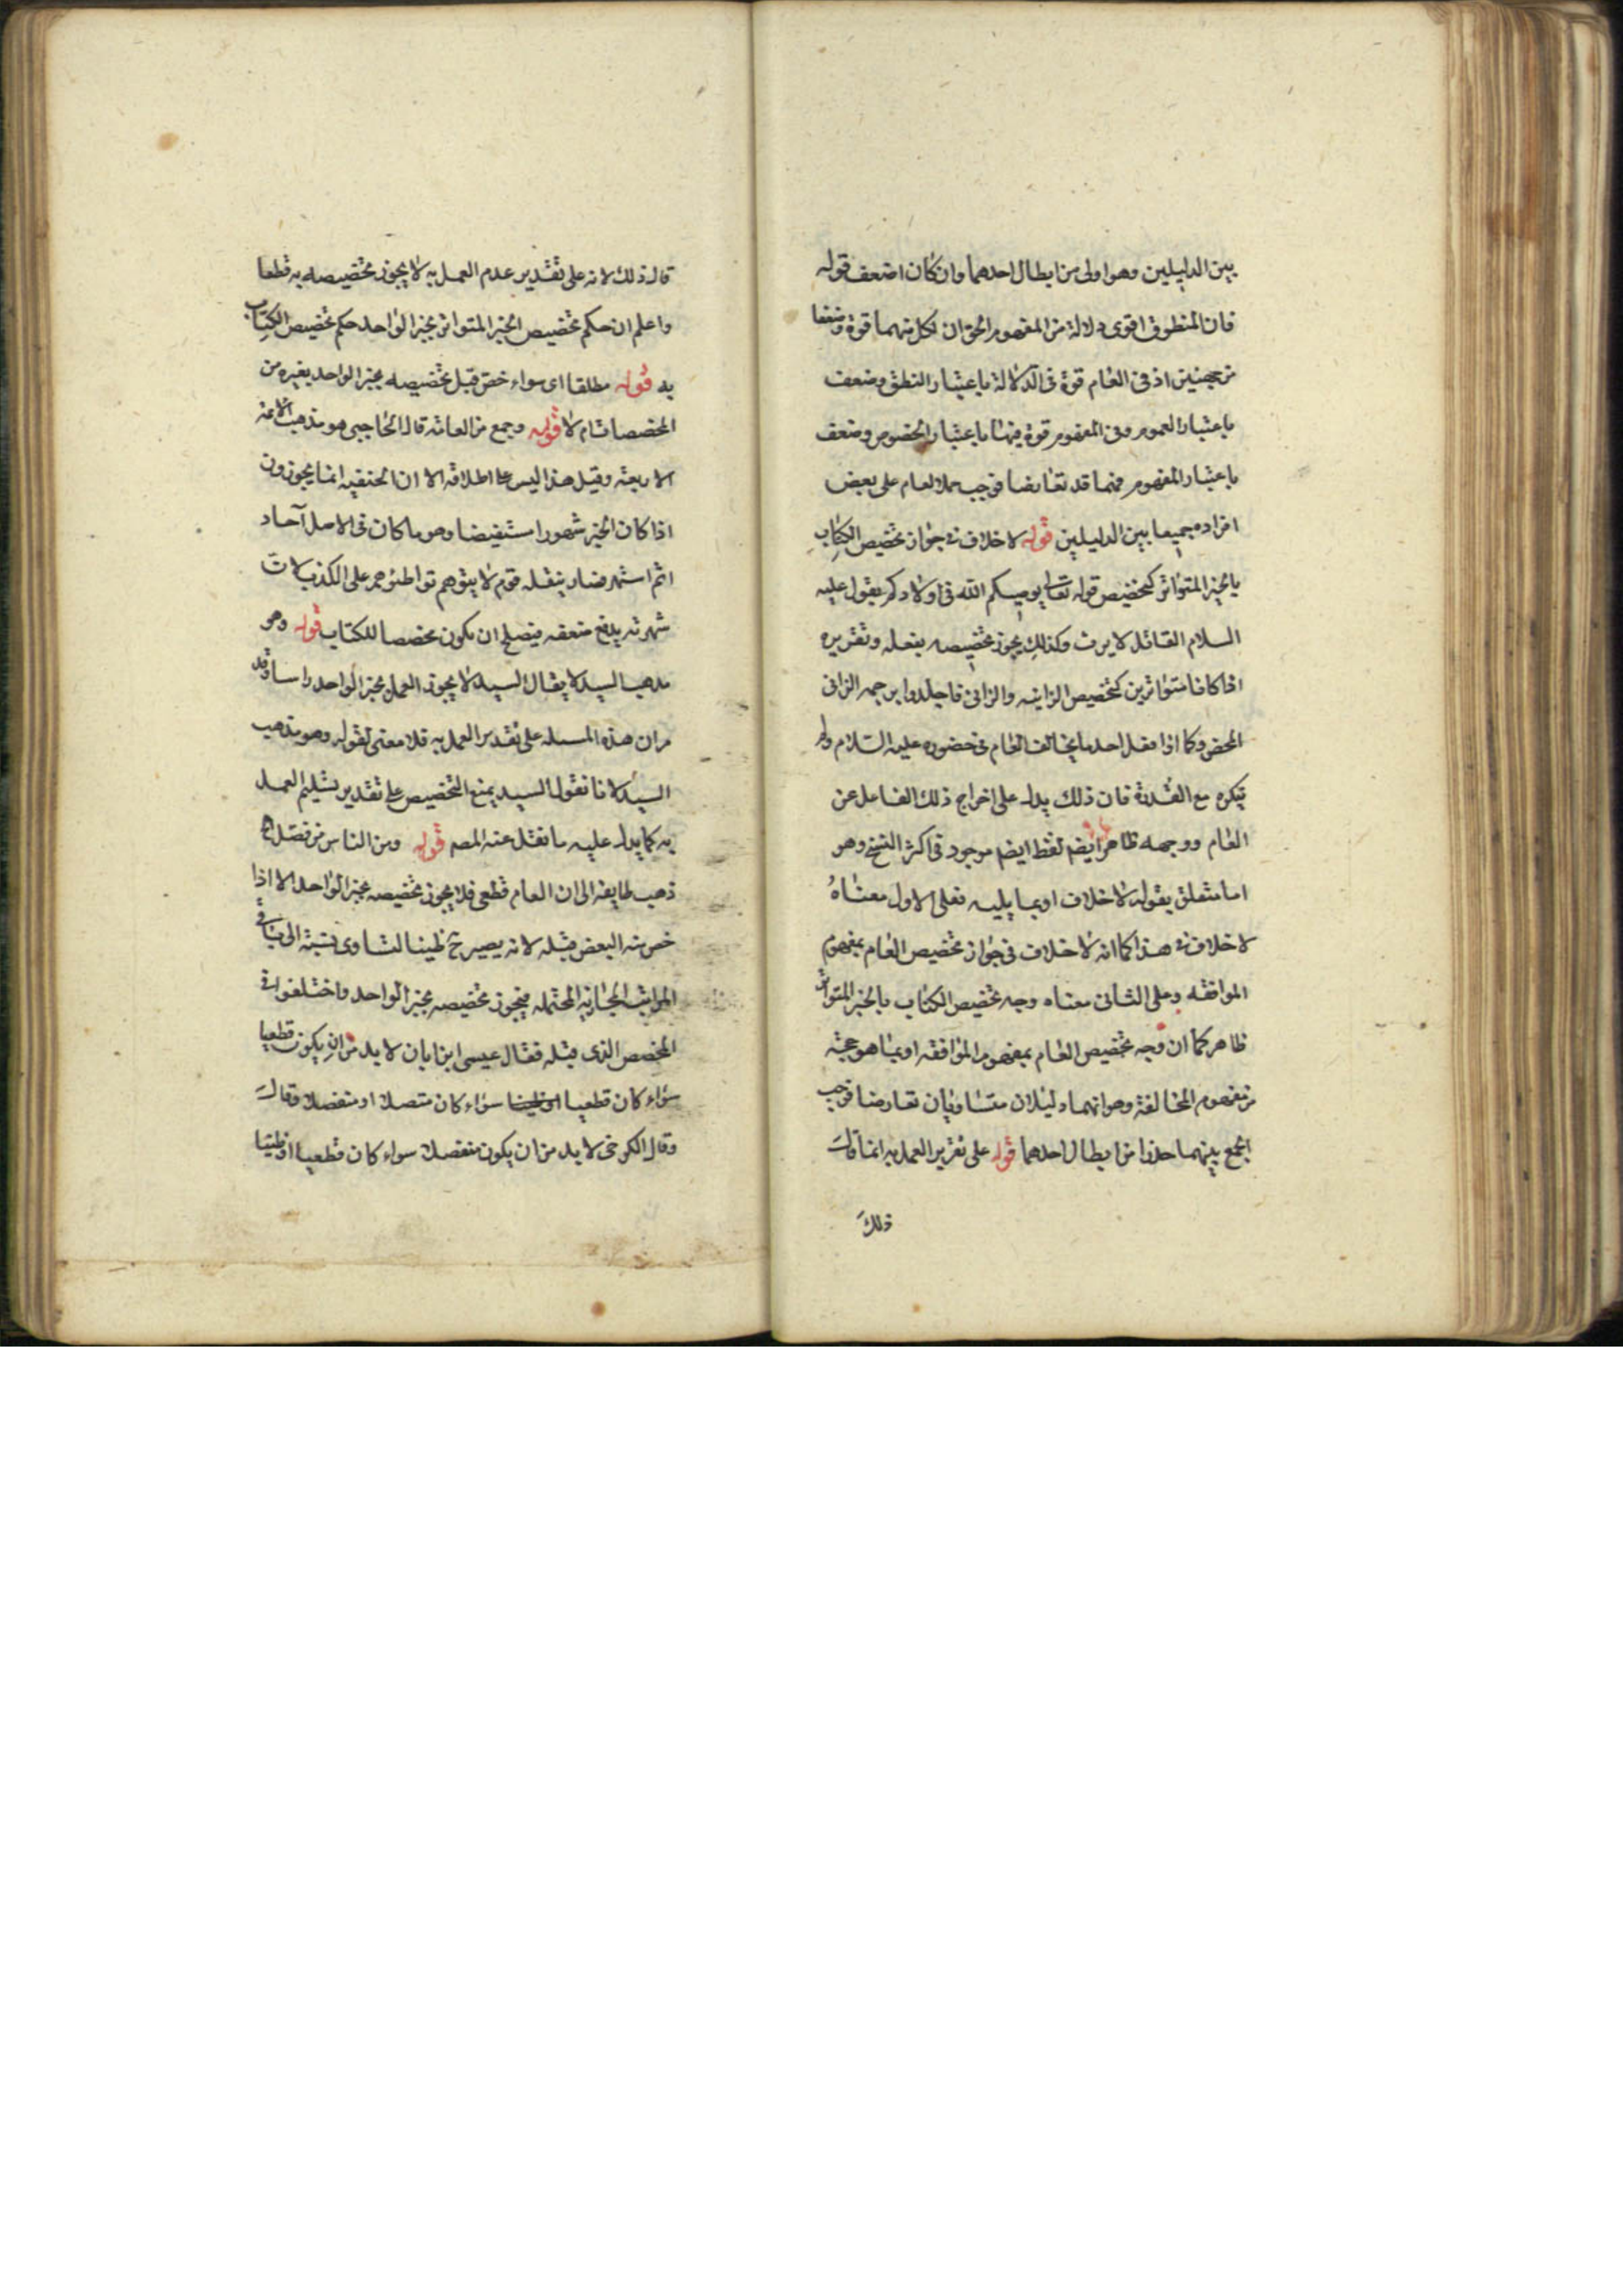 بين الدليلين وهو اولى من ابطال احدهما وان كان اضعف قوله
فان المنطوق اقوى دلالة من المفهوم الحق ان لكل منهما قوة وضعفا
من جهتين اذ فى العام قوة فى الدلالة باعتبار النطق وضعف
باعتبار العموم وفى المفهوم قوة فيها باعتبار الخصوص وضعف
باعتبار المفهوم فهما قد تعارضا فوجب حمل العام على بعض
افراده جميعا بين الدليلين قوله لا خلاف فى جواز تخصيص الكتاب
بالخبر المتواتر كتخصيص قوله تعالى يوصيكم الله فى اولادكم بقول عليه
السلام القاتل لا يرث وكذلك يجوز تخصيصه بفعله وتقريره
اذا كانا متواترين كتخصيص الزانية والزانى فاجلدوا برجمه الزانى
المحصن وكما اذا فعل احد ما يخالف العام فى حضوره عليه السلام ولم
ينكره مع القدرة فان ذلك يدل على اخراج ذلك الفاعل عن
العام ووجهه ظاهر ايضم لفظ ايضم موجود فى اكثر النسخ وهو
اما متعلق بقوله لا خلاف او بما يليه فعلى الاول معناه
لا خلاف فى هذا كما انه لا خلاف فى جواز تخصيص العام بمفهوم
الموافقه وعلى الثانى معناه وجه تخصيص الكتاب بالخبر المتواتر
ظاهر كما ان وجه تخصيص العام بمفهوم الموافقه او بما هو حجة
من مفهوم المخالفة وهو انهما دليلان متساويان تعارضا فوجب
الجمع بينهما حذرا من ابطال احدهما قوله على تقرير العمل به انما قال
ذلك
قال ذلك لانه على تقدير عدم العمل به لا يجوز تخصيصه به قطعا
واعلم ان حكم تخصيص الخبر المتواتر بخبر الواحد حكم تخصيص الكتاب
به قوله مطلقا اى سواء خص قبل تخصيصه بخبر الواحد بغيره من
المخصصات ام لا قوله وجمع من العامه قال الحاجبى هو مذهب الائمة
الاربعة وقيل هذا ليس على اطلاقه الا ان الحنفيه انما يجوزون
اذا كان الخبر مشهورا مستفيضا وهو ما كان فى الاصل آحاد
اثم اشتهر فصار ينقله قوم لا يتوهم تواطئوهم على الكذب لان
شهرته يدفع ضعفه فيصلح ان يكون مخصصا للكتاب قوله وهو
مذهب السيد لا يقال السيد لا يجوز العمل بخبر الواحد راسا وقد
مر ان هذه المسئله على تقدير العمل به فلا معنى لقوله وهو مذهب
السيد لانا نقول السيد يمنع التخصيص على تقدير تسليم العمل
به كما يدل عليه ما نقل عنه المصم قوله ومن الناس من فصل اه
ذهب طايفه الى ان العام قطعى فلا يجوز تخصيصه بخبر الواحد الا اذا
خص منه البعض قبله لانه يصير ح ظنيا لتساوى نسبته الى باقى
المراتب المجازيه المحتمله فيجوز تخصيصه بخبر الواحد واختلفوا فى
المخصص الذى قبله فقال عيسى ابن ابان لا بد من ان يكون قطعيا
سواء كان قطعيا او ظنيا سواء كان متصلا او منفصلا وقال
وقال الكرخى لا بد من ان يكون منفصلا سواء كان قطعيا او ظنيا